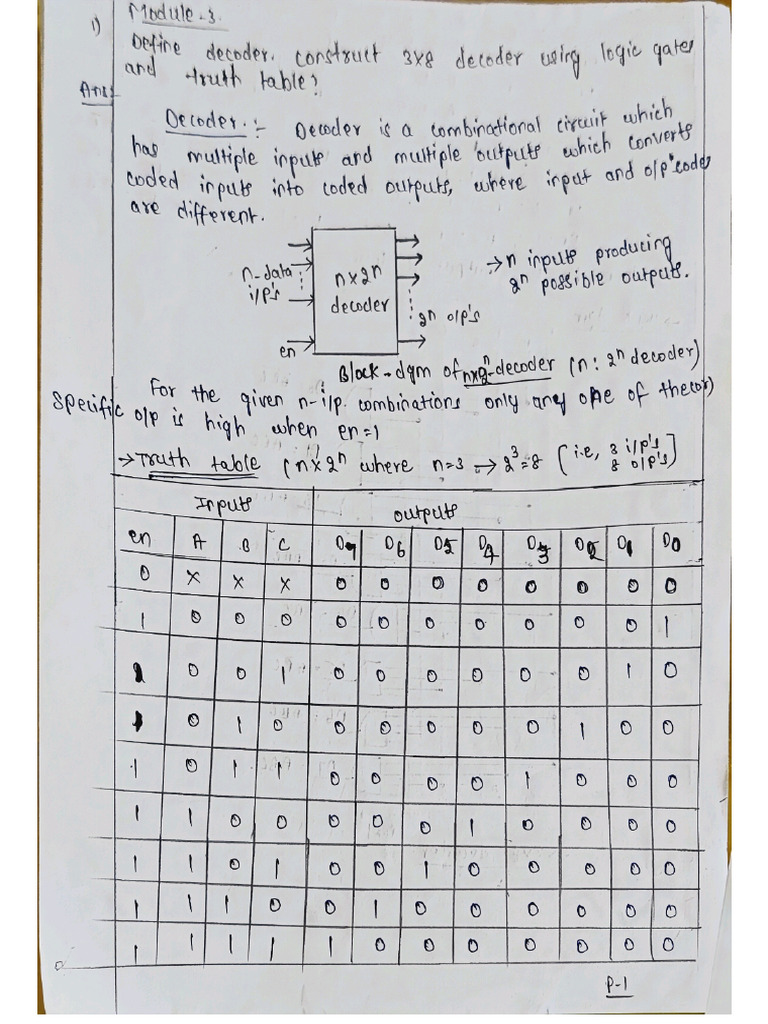 Module-3
1) Define decoder. construct 3x8 decoder using logic gates
and truth table?
Ans:- Decoder :- Decoder is a combinational circuit which
has multiple inputs and multiple outputs which converts
coded inputs into coded outputs, where input and o/p codes
are different.
n-data i/p's
en
nx2ⁿ decoder
2ⁿ o/p's
→ n inputs producing
2ⁿ possible outputs.
Block-dgm of nx2ⁿ-decoder (n : 2ⁿ decoder)
For the given n-i/p combinations only any one of the (or)
specific o/p is high when en=1
→ Truth table (nx2ⁿ where n=3 → 2³=8 [i.e, 3 i/p's 8 o/p's]
Inputs Outputs
en A B C D7 D6 D5 D4 D3 D2 D1 D0
0 x x x 0 0 0 0 0 0 0 0
1 0 0 0 0 0 0 0 0 0 0 1
1 0 0 1 0 0 0 0 0 0 1 0
1 0 1 0 0 0 0 0 0 1 0 0
1 0 1 1 0 0 0 0 1 0 0 0
1 1 0 0 0 0 0 1 0 0 0 0
1 1 0 1 0 0 1 0 0 0 0 0
1 1 1 0 0 1 0 0 0 0 0 0
1 1 1 1 1 0 0 0 0 0 0 0
P-1